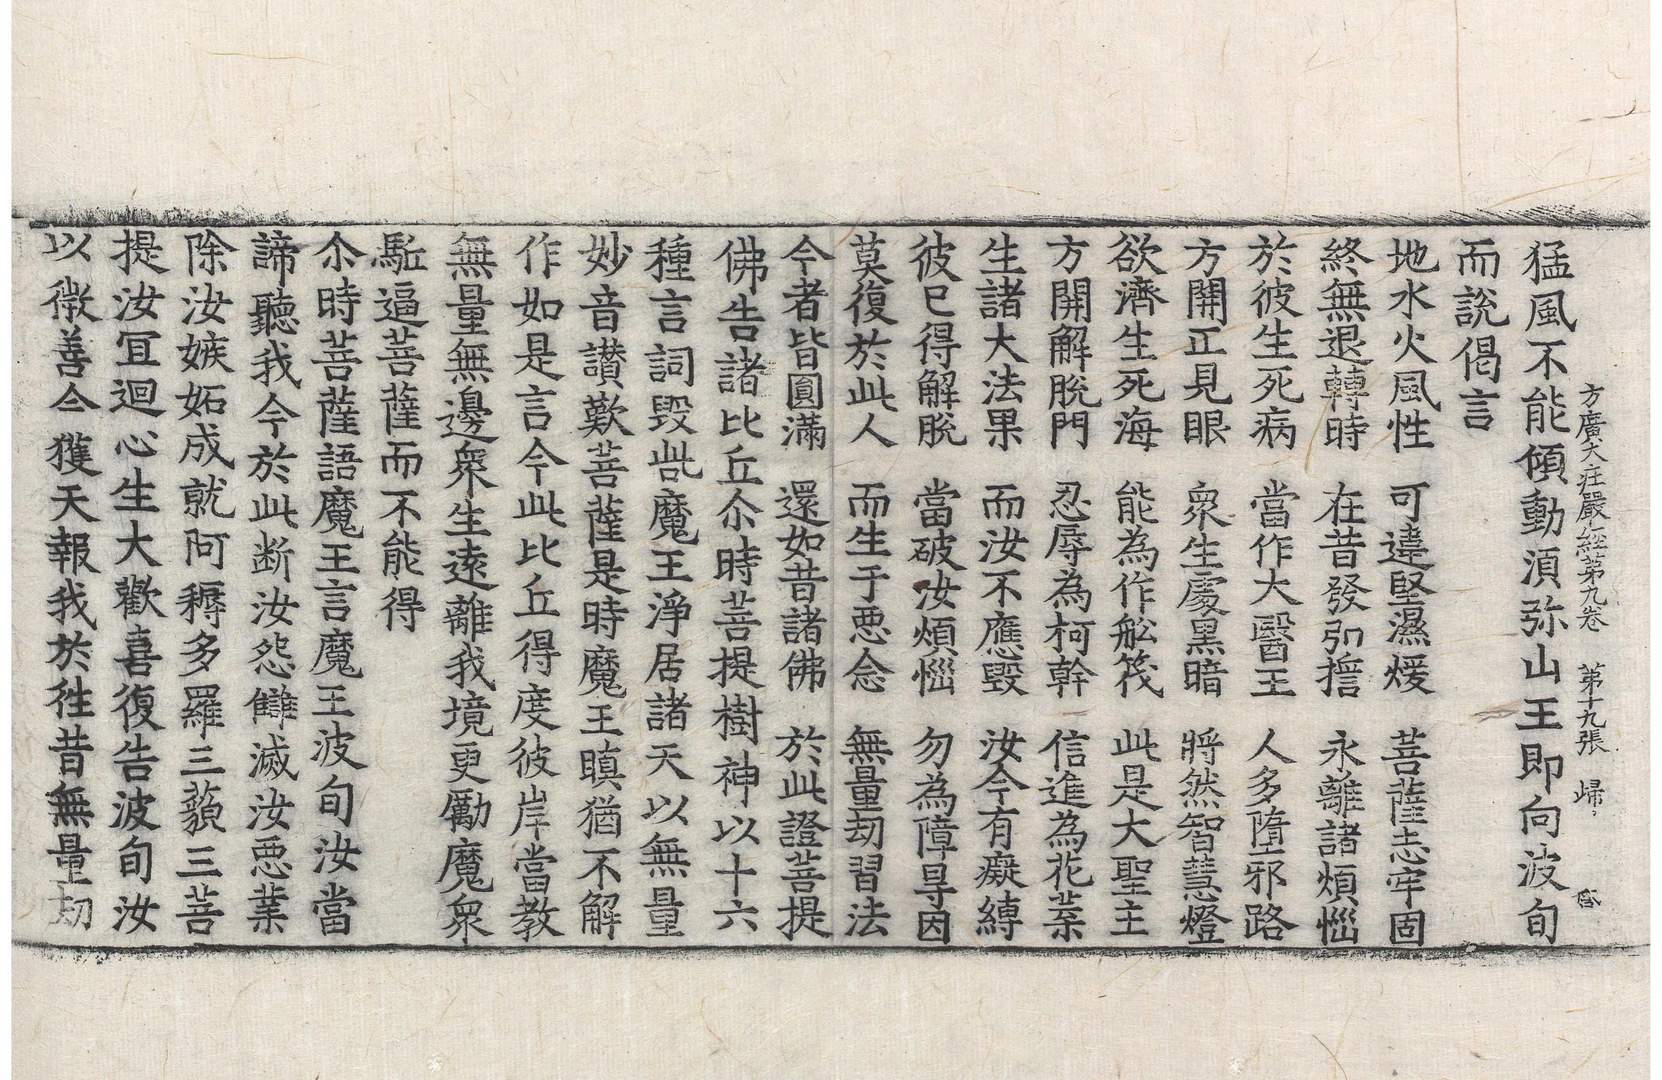 方廣大庄嚴經苐九卷　苐十九張　歸
猛風不能傾動湏弥山王即向波旬
而說偈言
地水火風性　可違堅濕煖　菩薩志牢固
終無退轉時　在昔發弘擔　永離諸煩惱
於彼生死病　當作大醫王　人多墮邪路
方開正見眼　衆生處黑暗　將然智慧燈
欲濟生死海　能為作舩筏　此是大聖主
方開解脫門　忍辱為柯幹　信進為花菓
生諸大法果　而汝不應毀　汝今有癡縛
彼已得解脫　當破汝煩惱　勿為障㝵因
莫復於此人　而生于惡念　無量劫習法
今者皆圓滿　還如昔諸佛　於此證菩提
佛告諸比丘尒時菩提樹神以十六
種言詞毀呰魔王淨居諸天以無量
妙音讃歎菩薩是時魔王瞋猶不解
作如是言今此比丘得度彼岸當教
無量無邊衆生遠離我境更勵魔衆
駈逼菩薩而不能得
尒時菩薩語魔王言魔王波旬汝當
諦聽我今於此断汝怨讎滅汝惡業
除汝嫉妬成就阿耨多羅三藐三菩
提汝冝迴心生大歡喜復告波旬汝
以微善今獲天報我於徃昔無量劫